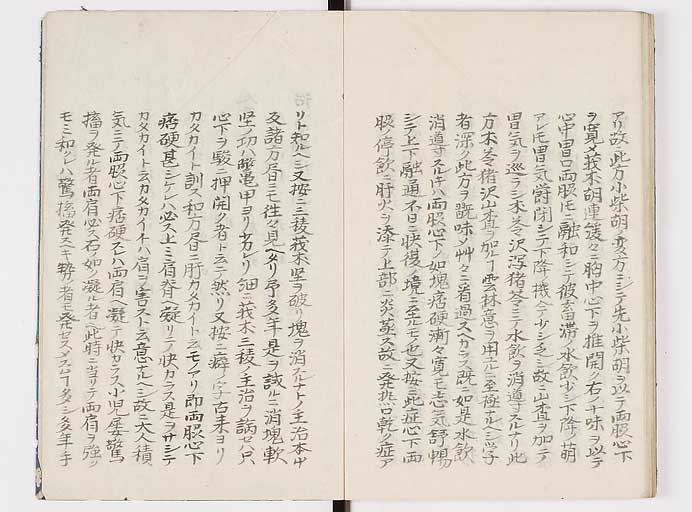 アリ故ニ此方小柴胡ノ変方ニシテ先小柴胡ヲ以テ両脇心下
ヲ寛メ莪朮胡連後々ニ胸中心下ヲ推開ノ右ノ十味ヲ以テ
心中胃口両脇モニ融和シテ彼ノ畜滞ノ水飲少シ下降ノ萌
アレモ胃気欝閉シテ下降ノ機ヘテ少シ乏シ故ニ山査ヲ加テ
胃気ヲ巡ラシ木苓沢瀉猪苓ニテ水飲ヲ消導スルナリ此
方木苓猪沢山査ヲ加ルー雲林意ヲ用ユルニ至極ナルヘシ学
者深ク此方ヲ既味メ艸々ニ看過スヘカラス既ニ如是水飲
消導スルトキハ両脇心下ノ如塊痞硬漸々寛モ志気舒暢
シテ上下融通不日ニ快復ノ境ニ至ルモノ也又按ニ此症心下両
脇ノ停飲ニ肝火ヲ添テ上部ニ炎蒸ス故ニ発熱口乾ノ症ア
リト知ルヘシ又按ニ三稜莪朮坚ヲ破リ塊ヲ消スルナトノ主治本艸
及諸方昏ニモ往々見ヘタリ予多年是ヲ試ルニ消塊軟
坚ノ功ハ鼈亀甲ヨリカレリ細ニ莪朮三稜ノ主治ヲ論セハ只
心下ヲ駿ニ押開ク者ト云テ然リ又按ニ癖ノ字古来ヨリ
カタカイト訓ス和方昏ニ肝カタカイト云モノアリ即両脇心下
痞硬甚シケレハ必ス上ニ肩脊ヘ凝リテ快カラス是ヲサシテ
カタカイト云カタカイハ肩ヲ害スト云意ナルヘシ故ニ大人積
気ニテ両脇心下痞硬スレハ両肩ヘ凝テ快カラス小児屡驚
搐ヲ発ル者両肩必ス右ノ如ク凝ル者ヘ此時ニ当リテ両肩ヲ強ク
モミ和クレハ驚搐発スヘキ勢ノ者モ発セスメスムー多シ多年手